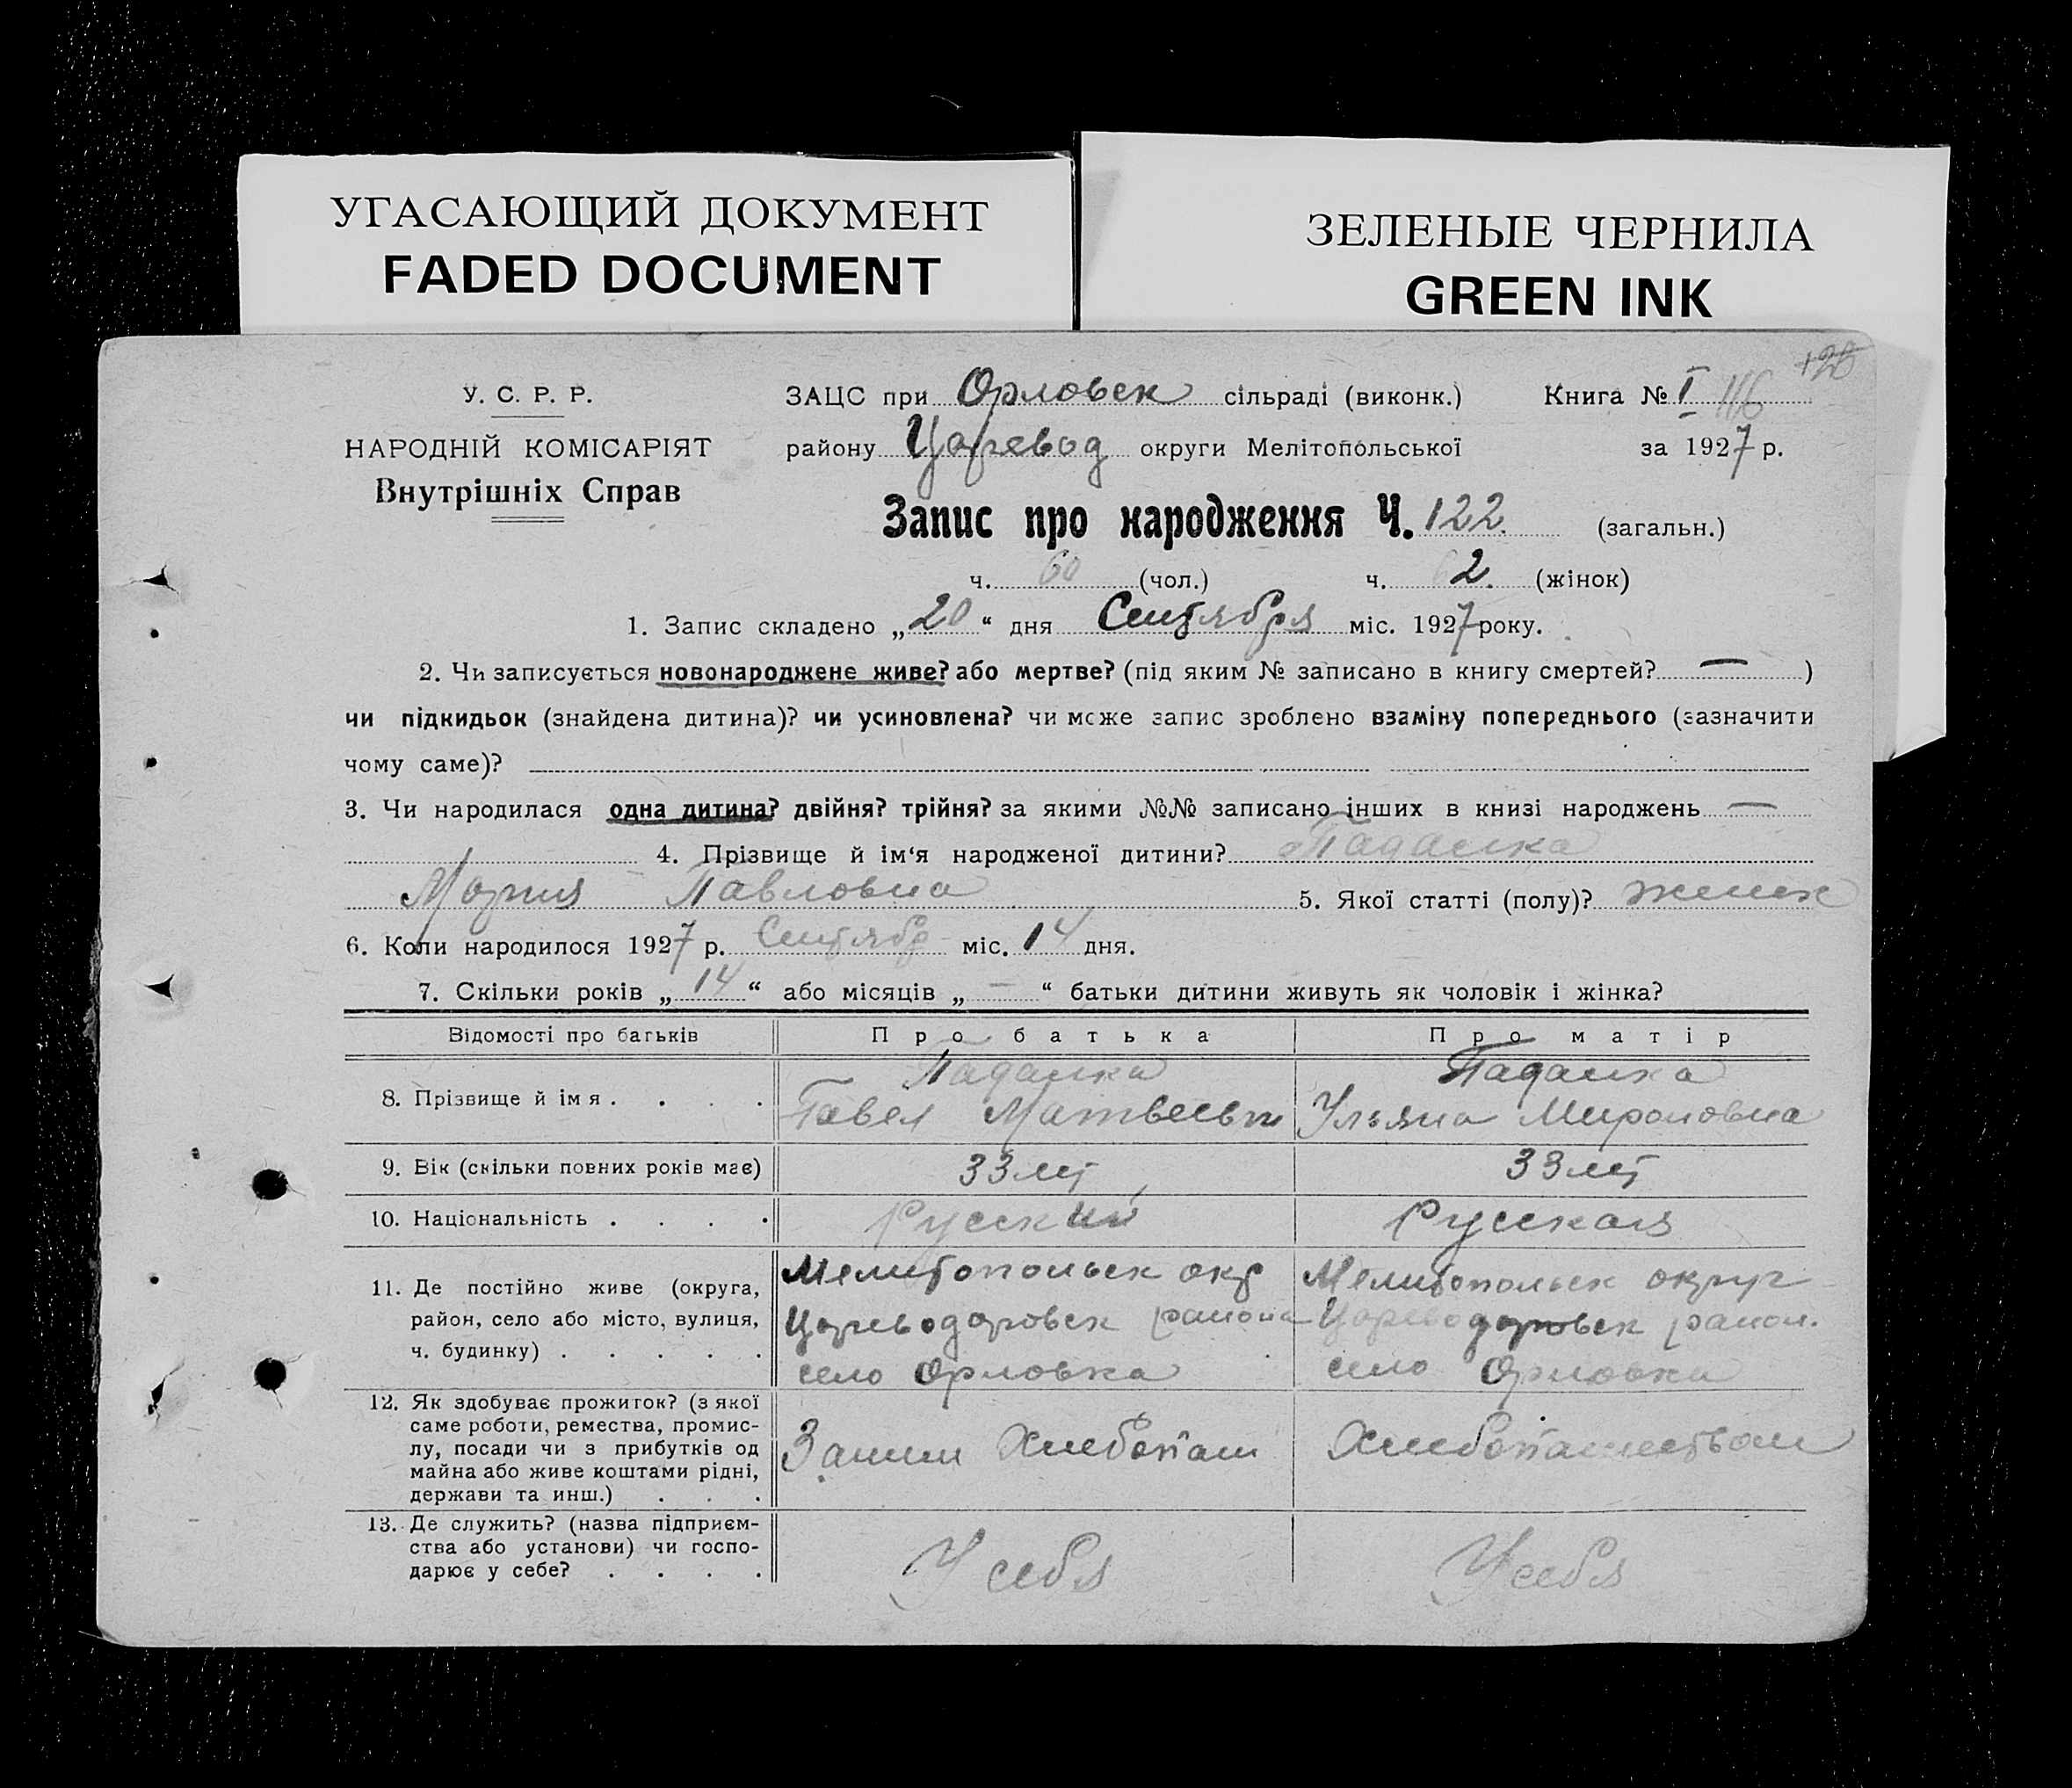 УГАСАЮЩИЙ ДОКУМЕНТ
FADED DOCUMENT
ЗЕЛЕНЫЕ ЧЕРНИЛА
GREEN INK
120
У. С. Р. Р.
НАРОДНІЙ КОМІСАРІЯТ
Внутрішніх Справ
ЗАЦС при Орловск сільраді (виконк.) Книга № I 116
району Царевод округи Мелітопольської за 1927 р.
Запис про народження Ч. 122. (загальн.)
ч. 60 (чол.) ч. 62. (жінок)
1. Запис складено „20“ дня Сентября міс. 1927 року.
2. Чи записується новонароджене живе? або мертве? (під яким № записано в книгу смертей? — )
чи підкидьок (знайдена дитина)? чи усиновлена? чи може запис зроблено взаміну попереднього (зазначити
чому саме)?
3. Чи народилася одна дитина? двійня? трійня? за якими №№ записано інших в книзі народжень —
4. Прізвище й ім‘я народженої дитини? Падалка
Мария Павловна 5. Якої статті (полу)? женск
6. Коли народилося 1927 р. Сентябр міс. 14 дня.
7. Скільки років „14“ або місяців „—“ батьки дитини живуть як чоловік і жінка?
Відомості про батьків Про батька Про матір
8. Прізвище й імя . . . . Падалка Падалка
Павел Матвеевич Ульяна Мироновна
9. Вік (скільки повних років має) 33 лет 33 лет
10. Національність . . . . Русский Русская
11. Де постійно живе (округа, Мелитопольск окр Мелитопольск округ
район, село або місто, вулиця, Цареводаровск района Цареводаровск район.
ч. будинку) . . . . . село Орловка село Орловка
12. Як здобуває прожиток? (з якої
саме роботи, ремества, промис-
лу, посади чи з прибутків од Заним Хлебопаш Хлебопашеством
майна або живе коштами рідні,
держави та инш.) . . .
13. Де служить? (назва підприєм-
ства або установи) чи госпо- У себя У себя
дарює у себе? . . . .